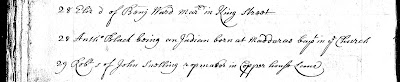 28 Eliz: d of Benj Ward Marr in King Street
28 Anth: Black being an Indian born at Maddaras bapd in ye Church
29 Rob: s of John Snelling ropmaker in Copper house Lane